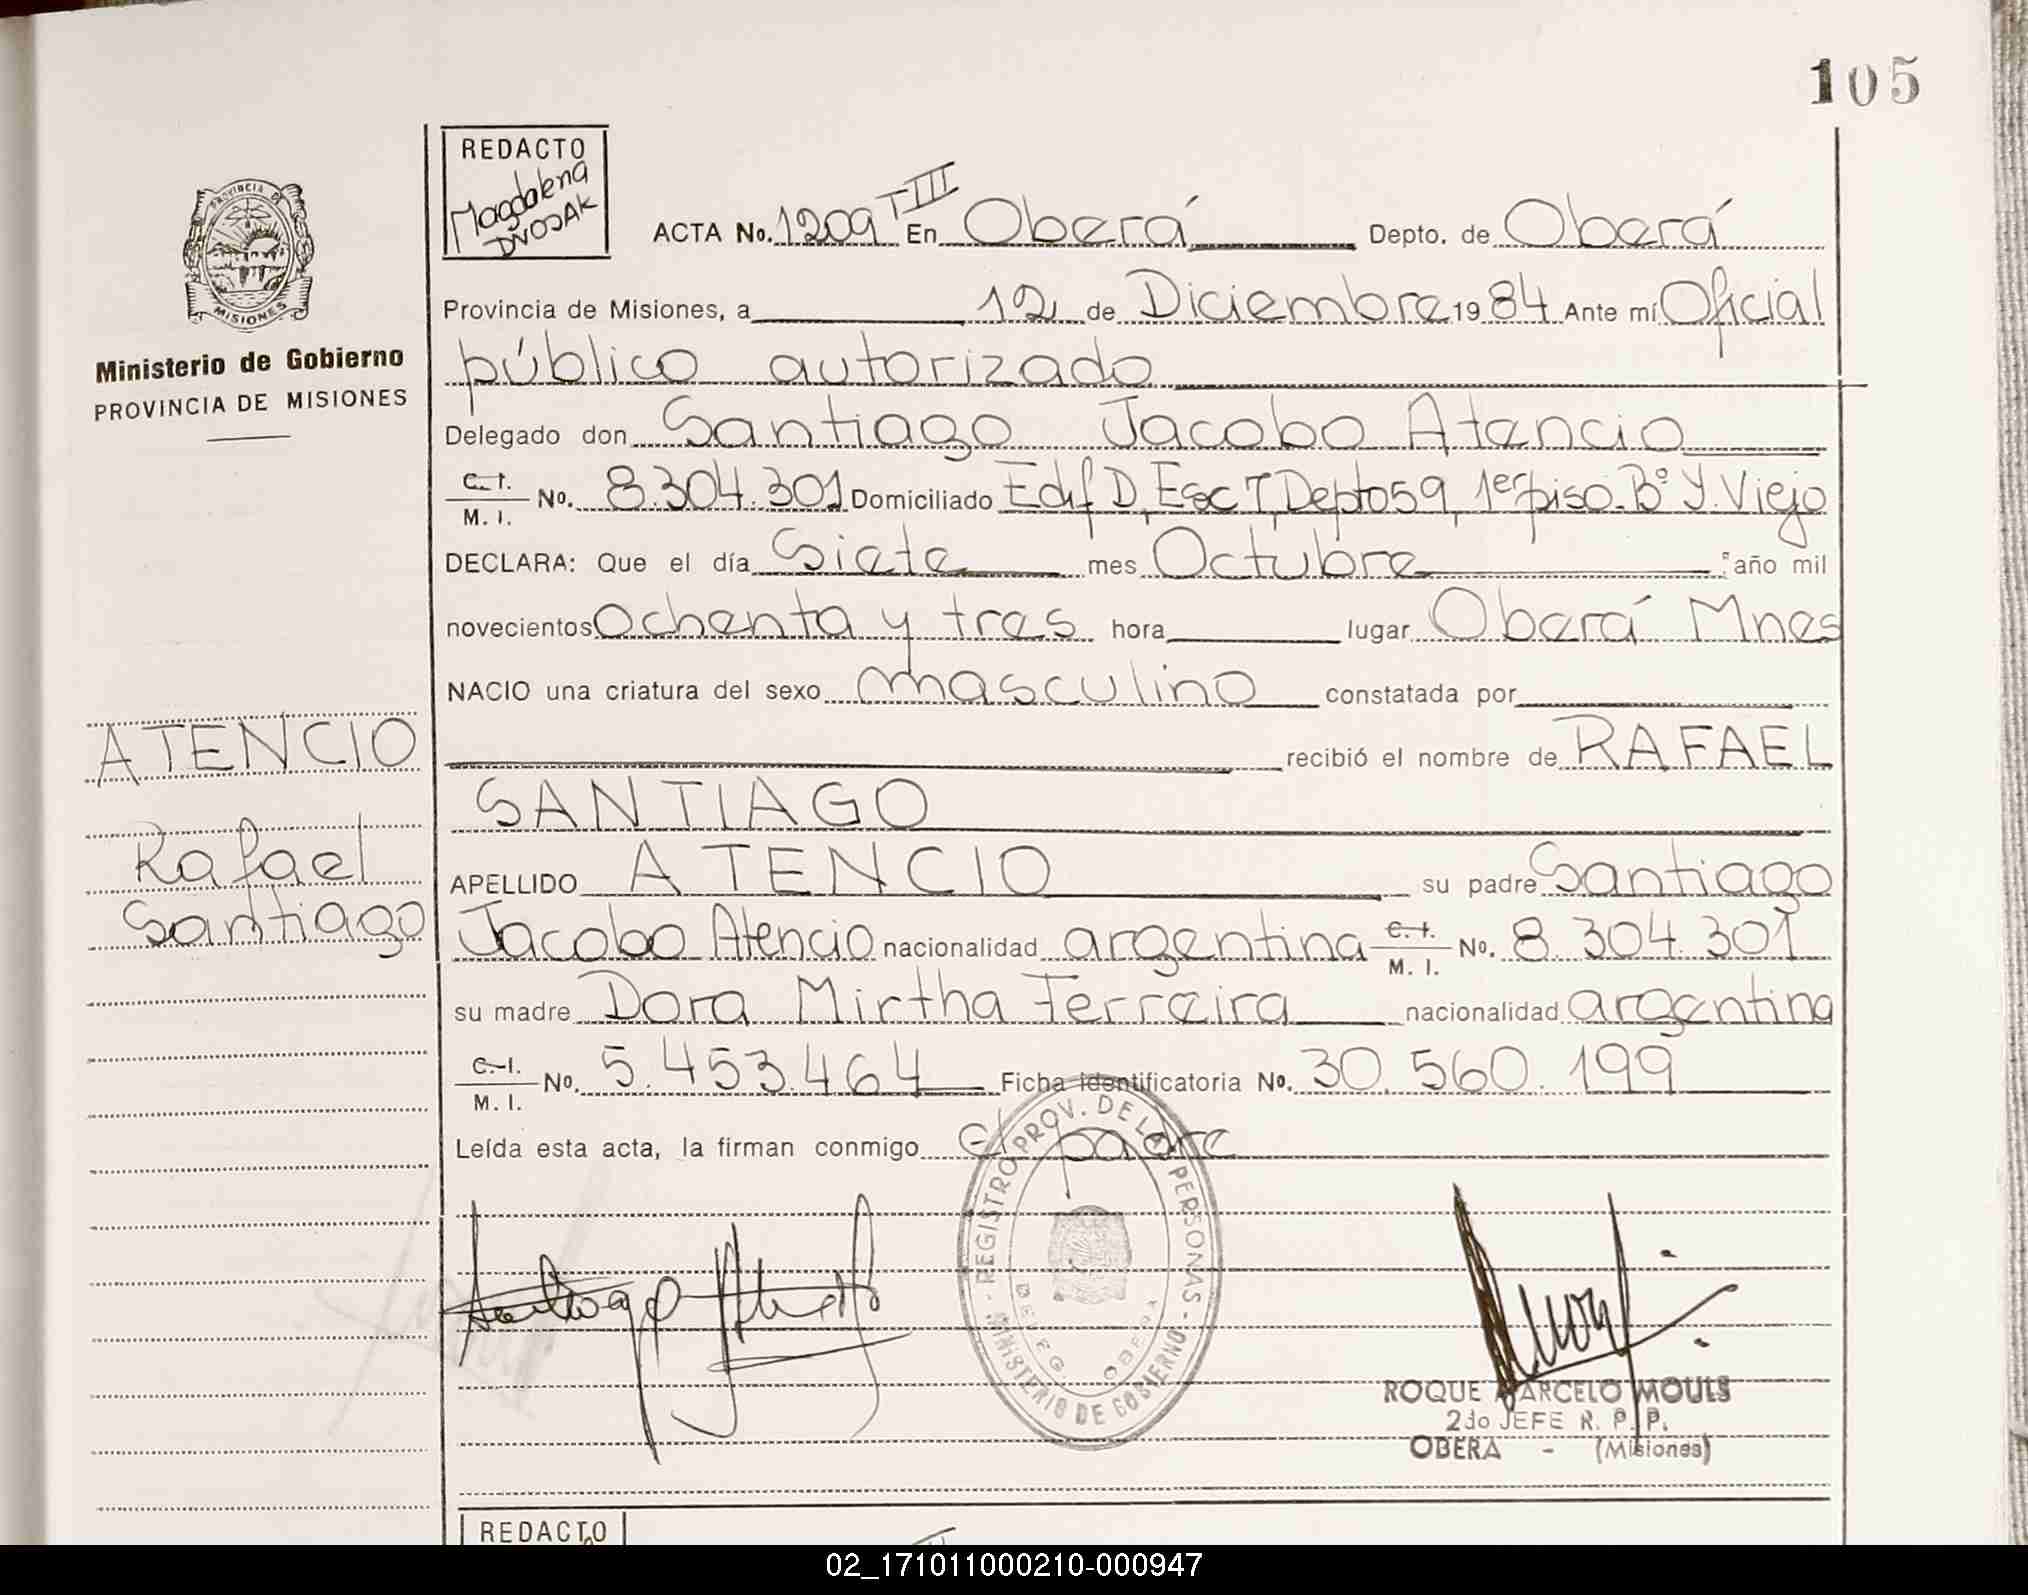 105
REDACTO
Magdalena
DVOJAK
PROVINCIA DE
MISIONES
Ministerio de Gobierno
PROVINCIA DE MISIONES
ACTA No. 1209 T III En Oberá Depto. de Oberá
Provincia de Misiones, a 12 de Diciembre 1984 Ante mí Oficial
público autorizado
Delegado don Santiago Jacobo Atencio
C. I. / M. I. No. 8.304.301 Domiciliado Edif D, Esc 7, Depto 59, 1er piso. Bº Y. Viejo
DECLARA: Que el día Siete mes Octubre año mil
novecientos Ochenta y tres hora lugar Oberá Mnes
NACIO una criatura del sexo masculino constatada por
recibió el nombre de RAFAEL
SANTIAGO
APELLIDO ATENCIO su padre Santiago
Jacobo Atencio nacionalidad argentina C. I. / M. I. No. 8.304.301
su madre Dora Mirtha Ferreira nacionalidad argentina
C. I. / M. I. No. 5.453.464 Ficha identificatoria No. 30.560.199
Leída esta acta, la firman conmigo el padre
ATENCIO
Rafael
Santiago
REGISTRO PROV. DE LAS PERSONAS - MINISTERIO DE GOBIERNO -
DELEG OBERA
ROQUE MARCELO MOULS
2do JEFE R. P. P.
OBERA - (Misiones)
REDACTO
02_171011000210-000947